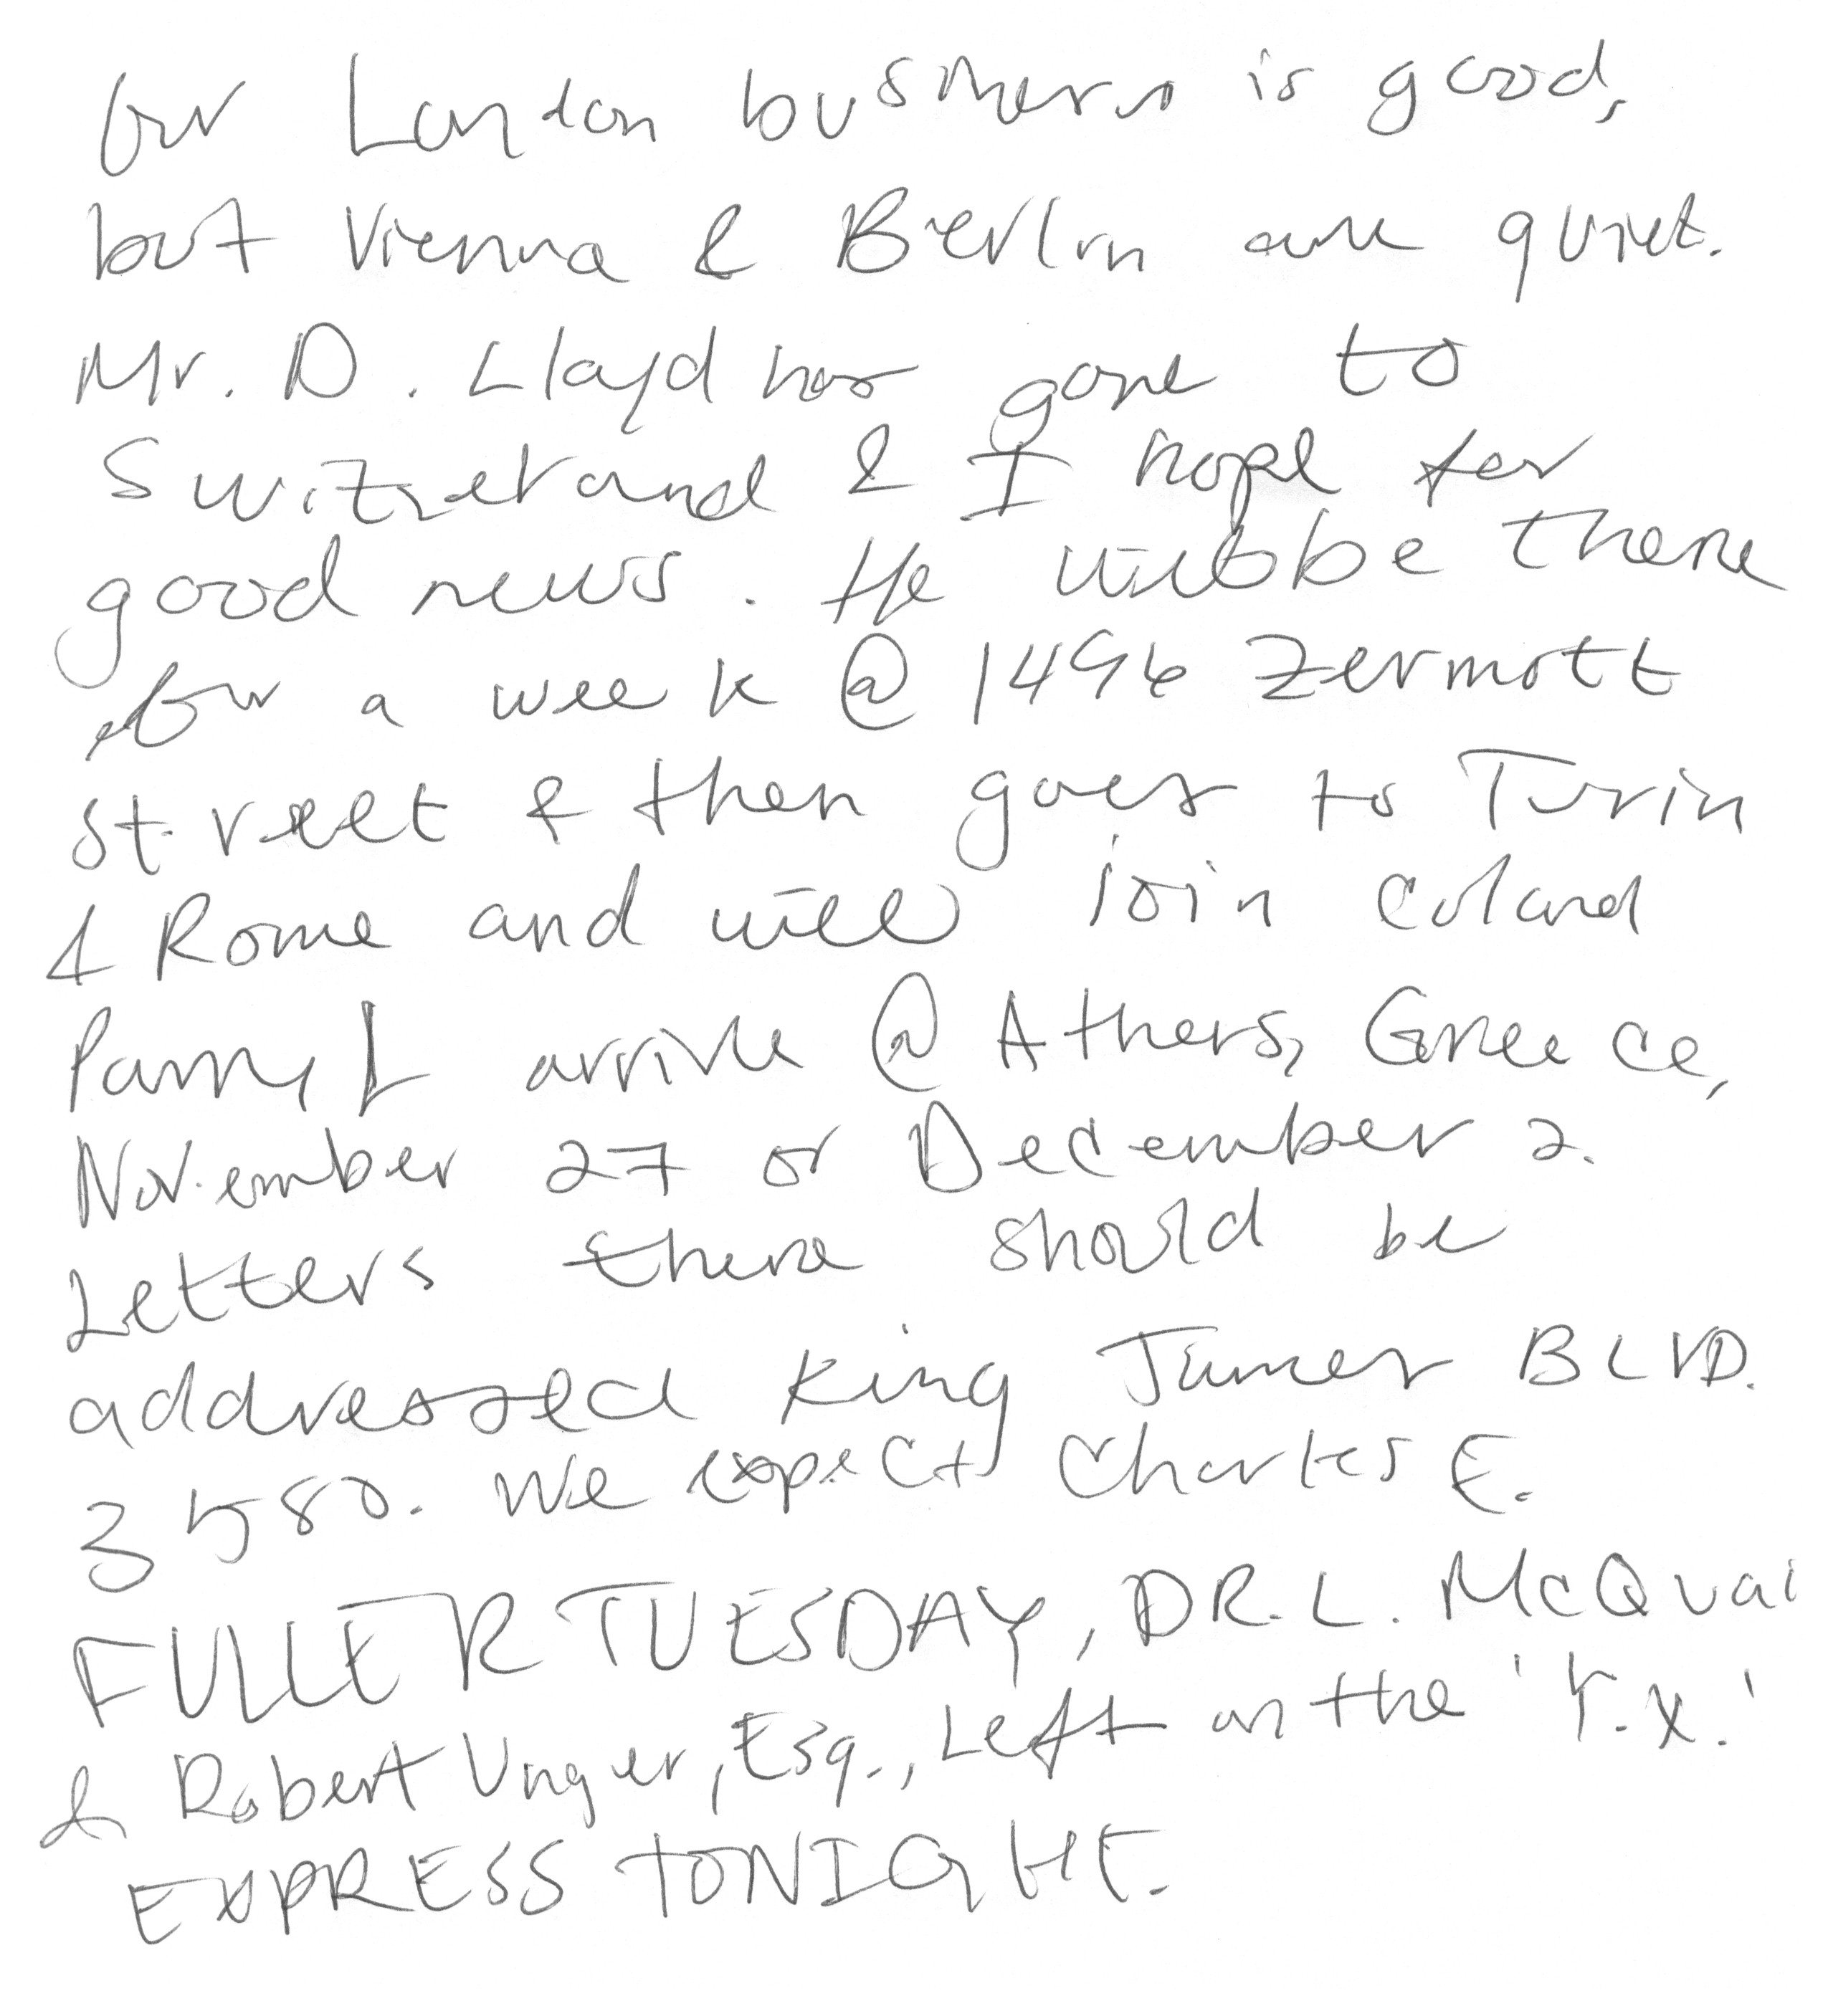 Our London business is good,
but Vienna & Berlin are quiet.
Mr. D. Lloyd has gone to
Switzerland & I hope for
good news. He will be there
for a week @ 1496 Zermott
Street & then goes to Turin
& Rome and will join Coland
Parry & arrive @ Athens, Greece,
November 27 or December 2.
Letters there should be
addressed King James BLVD.
3580. We expect Charles E.
FULLER TUESDAY, DR. L. McQuai
& Robert Unger, Esq., Left on the 'Y.X.'
EXPRESS TONIGHT.